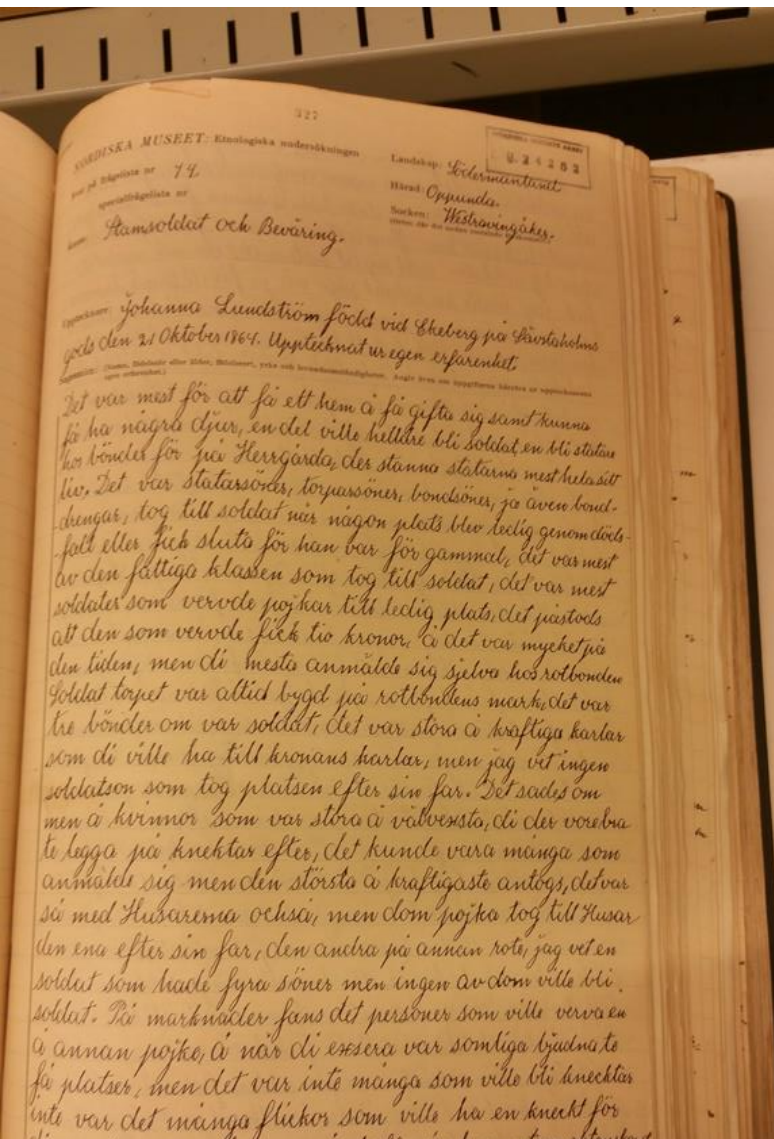 327
NORDISKA MUSEET: Etnologiska undersökningen
på frågelista nr 74
specialfrågelista nr
Stamsoldat och Beväring.
Landskap: Södermanland
Härad: Oppunda.
Socken: Westravingåker.
Johanna Lundström född vid Ekeberg på Sävstaholms
gods den 21 Oktober 1864. Upptecknat ur egen erfarenhet.
Det var mest för att få ett hem å få gifta sig samt kunna
få ha några djur, en del ville helldre bli soldat en bli statare
hos bönder för på Herrgårda, der stanna statarna mest hela sitt
liv. Det var statarsöner, torparsöner, bondsöner, ja även bond-
drengar, tog till soldat när någon plats blev ledig genom döds-
-fall eller fick sluta för han var för gammal, det var mest
av den fattiga klassen som tog till soldat, det var mest
soldater som vervde pojkar till ledig plats, det påstods
att den som vervde fick tio kronor, å det var mycket på
den tiden, men di mesta anmälde sig sjelva hos rotbonden
Soldat torpet var altid bygd på rotbondens mark, det var
tre bönder om var soldat, det var stora å kraftiga karlar
som di ville ha till kronans karlar, men jag vet ingen
soldatson som tog platsen efter sin far. Det sades om
men å kvinnor som var stora å välvexsta, di der vore bra
te legga på knektar efter, det kunde vara många som
anmälde sig men den största å kraftigaste antogs, det var
så med Husarerna ochså, men dom pojka tog till Husar
den ena efter sin far, den andra på annan rote, jag vet en
soldat som hade fyra söner men ingen av dom ville bli
soldat. På marknader fans det personer som ville verva en
å annan pojke, å när di exsera var somtiga bjudna te
få platser, men det var inte många som ville bli knecktar
inte var det många flickor som ville ha en kneckt för